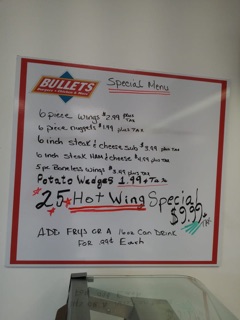 BULLETS
Special Menu
6 piece wings $2.99 plus Tax
6 piece nuggets $1.99 plus Tax
6 inch steak & cheese subs $3.99 plus Tax
6 inch steak Ham & cheese $4.99 plus Tax
5 pc Boneless wings $3.99 plus Tax
Potato Wedges 1.99 + Tax
25 Hot Wing Special
$9.99 + Tax
ADD FRYS OR A 16oz Can Drink
FOR .99¢ Each